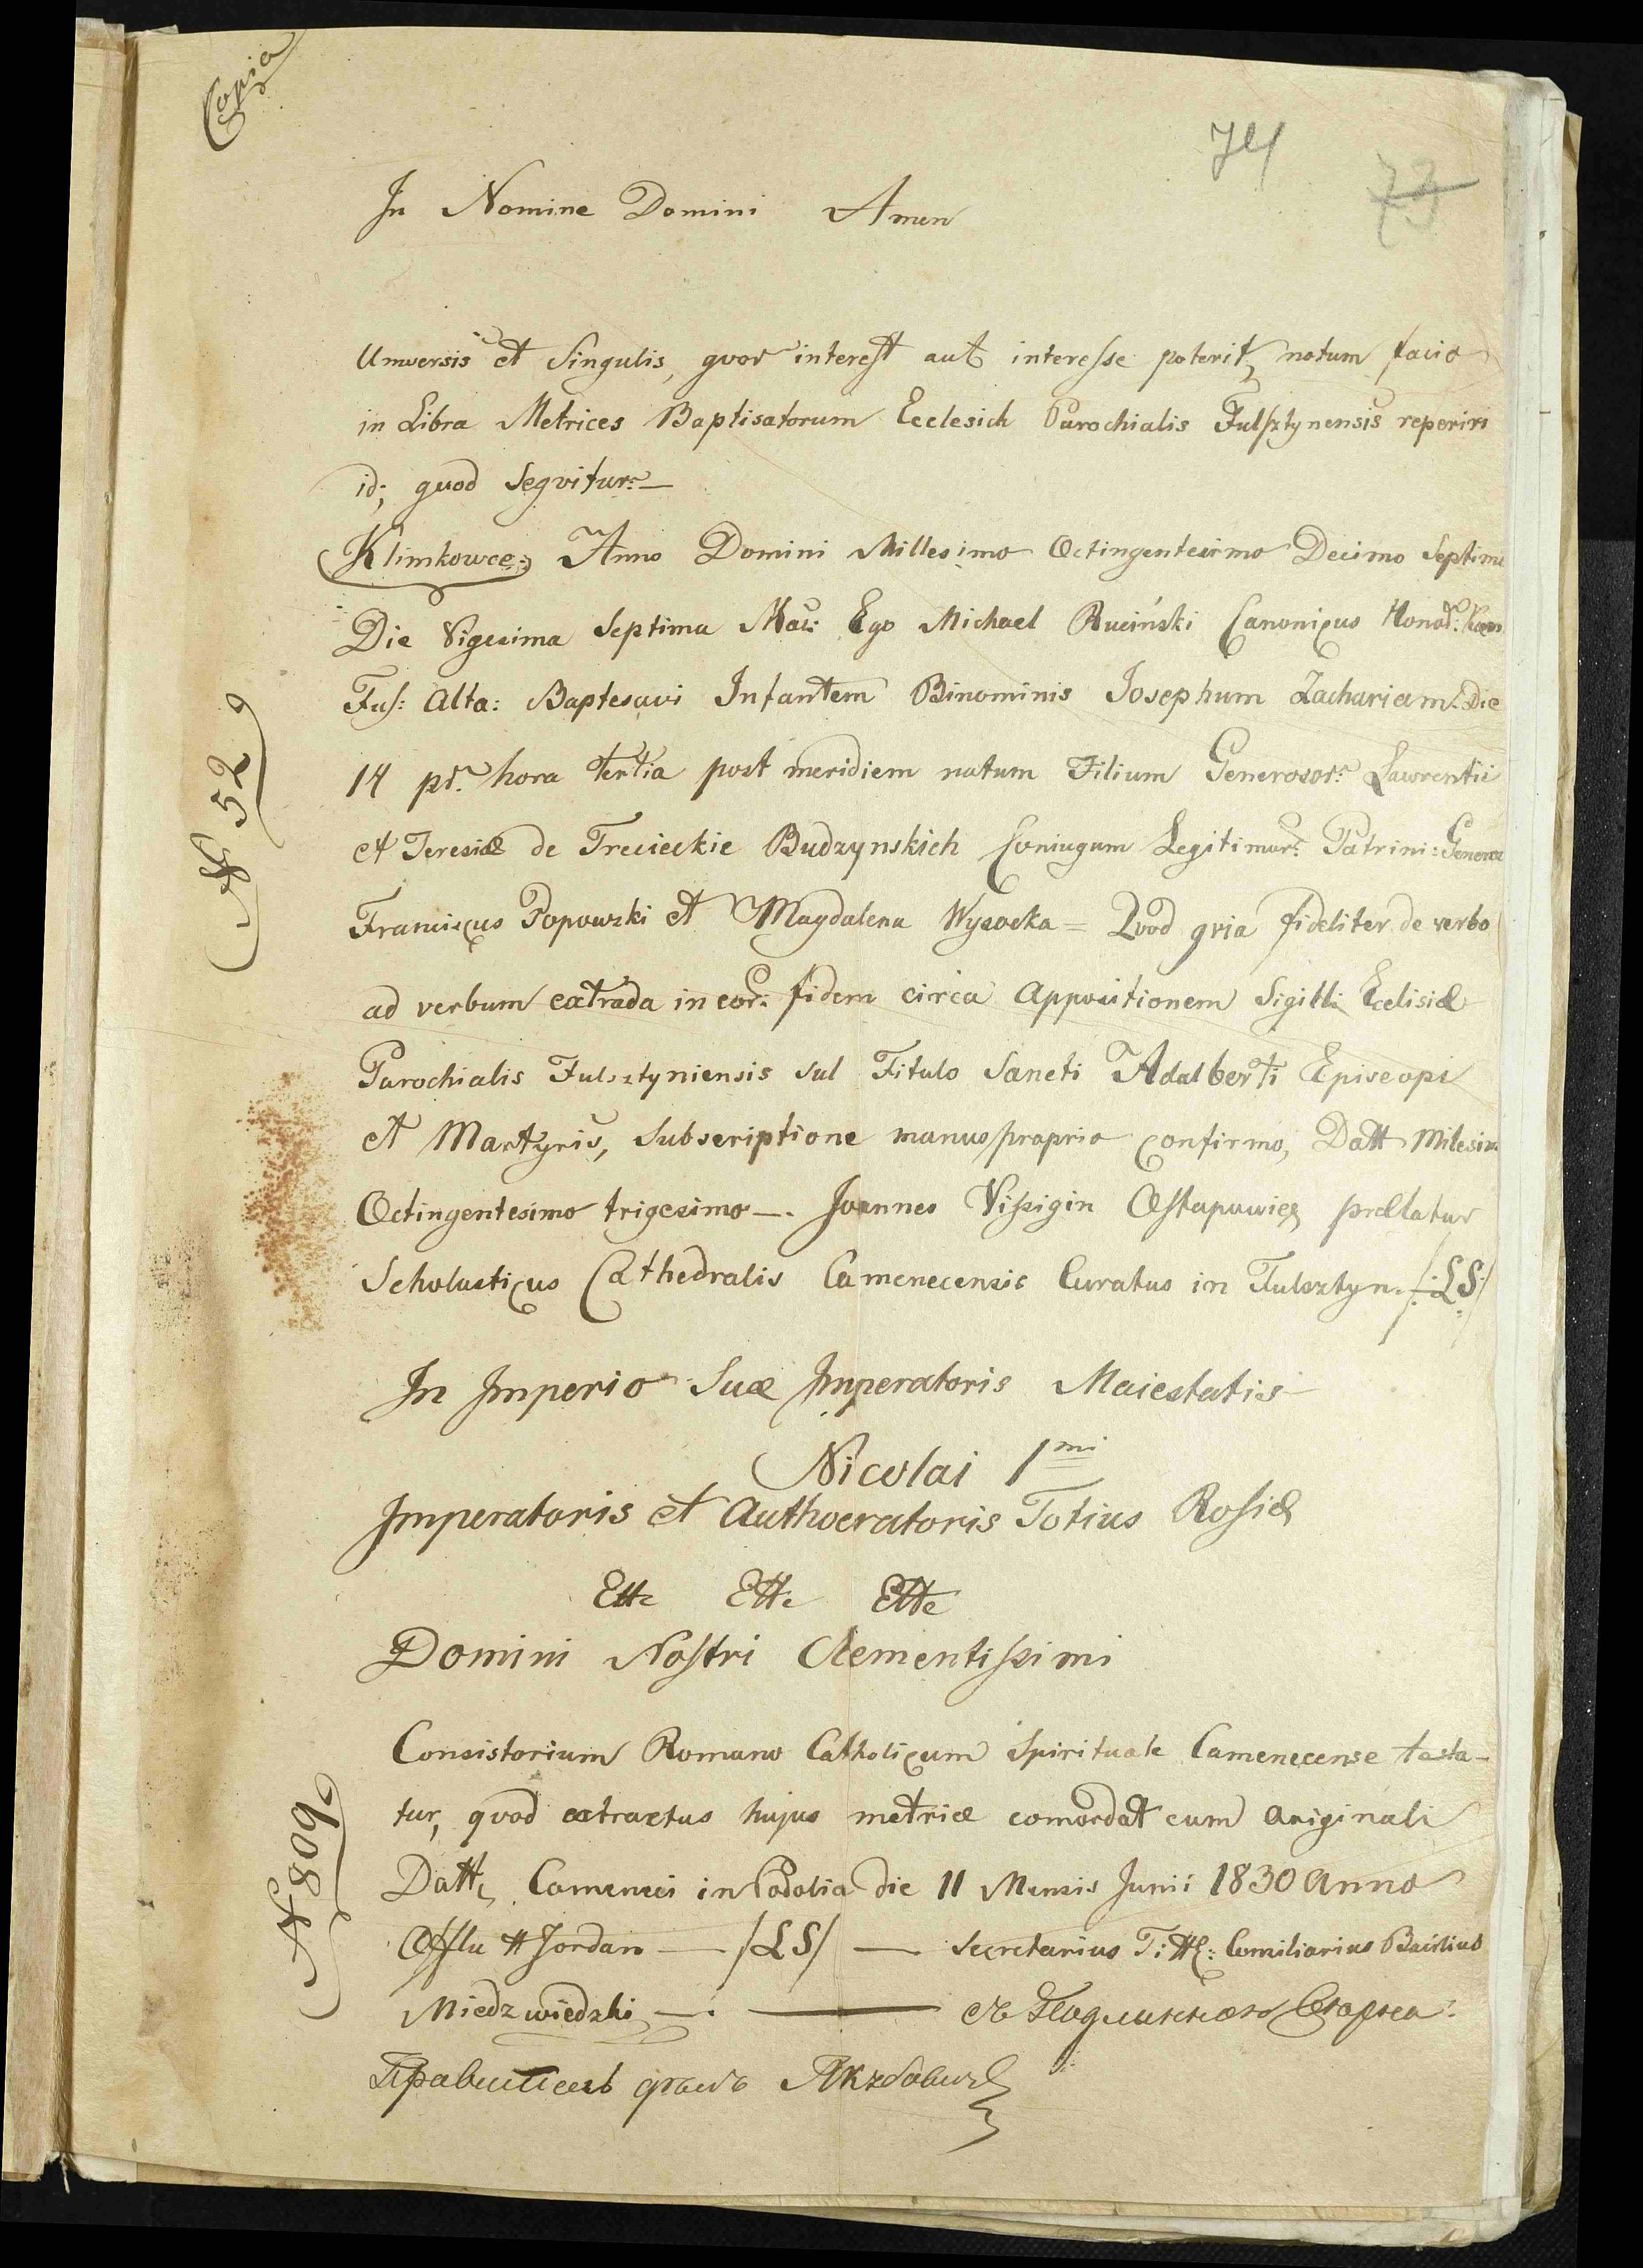 Copia
74
73
In Nomine Domini Amen
Unwersis et Singulis, qvor interest aut interesse poterit, notum facio
in Libra Metrices Baptisatorum Ecclesich Parochialis Fulsztynensis reperiri
id; quod Seqvitur:—
Klimkowce; Anno Domini Millesimo Octingentesimo Decimo Septimo
Die Vigesima Septima Mai: Ego Michael Ruciński Canonicus Honor:
Fus: Alta: Baptesavi Infantem Binominis Josephum Zachariam. Die
N 52
14 pr. hora tertia post meridiem natum Filium Generosor: Lawrentii
et Teresiæ de Trecieckie Budzynskich Coniugum Legitimor: Patrini: Generos
Franciscus Popowski et Magdalena Wysocka = Qvod qvia fideliter de verbo
ad verbum extrada in eor: fidem circa appositionem Sigilli Ecelisiæ
Parochialis Fulsztyniensis sul Titulo Sancti Adalberti Episcopi
et Martyris, Subscriptione manus propria confirmo, Datt Milesim
Octingentesimo trigesimo —. Joannes Vissigin Ostapowicz prælatus
Scholasticus Cathedralis Camenecensis Curatus in Fulsztyn. /:LS:/
In Imperio Suæ Imperatoris Maiestatis
Nicolai 1mi
Imperatoris et Authocratoris Totius Rossiæ
Ettc Ettc Ettc
Domini Nostri Clementissimi
Consistorium Romano Catholicum Spirituale Camenecense testa-
tur, qvod extractus hujus metricæ concordat cum originali
N 809
Datt, Cameneci in Podolia die 11 Mensis Junii 1830 Anno
Offlu H Jordan — /LS/ — Secretarius Titt: Consiliarius Basilius
Miedzwiedzki —. — съ Подлиннаго